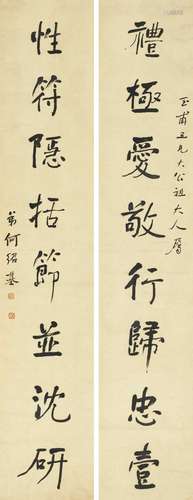 玉甫兄大公祖大人屬
禮極愛敬行歸忠壹
性符隱括節並沈研
弟何紹基